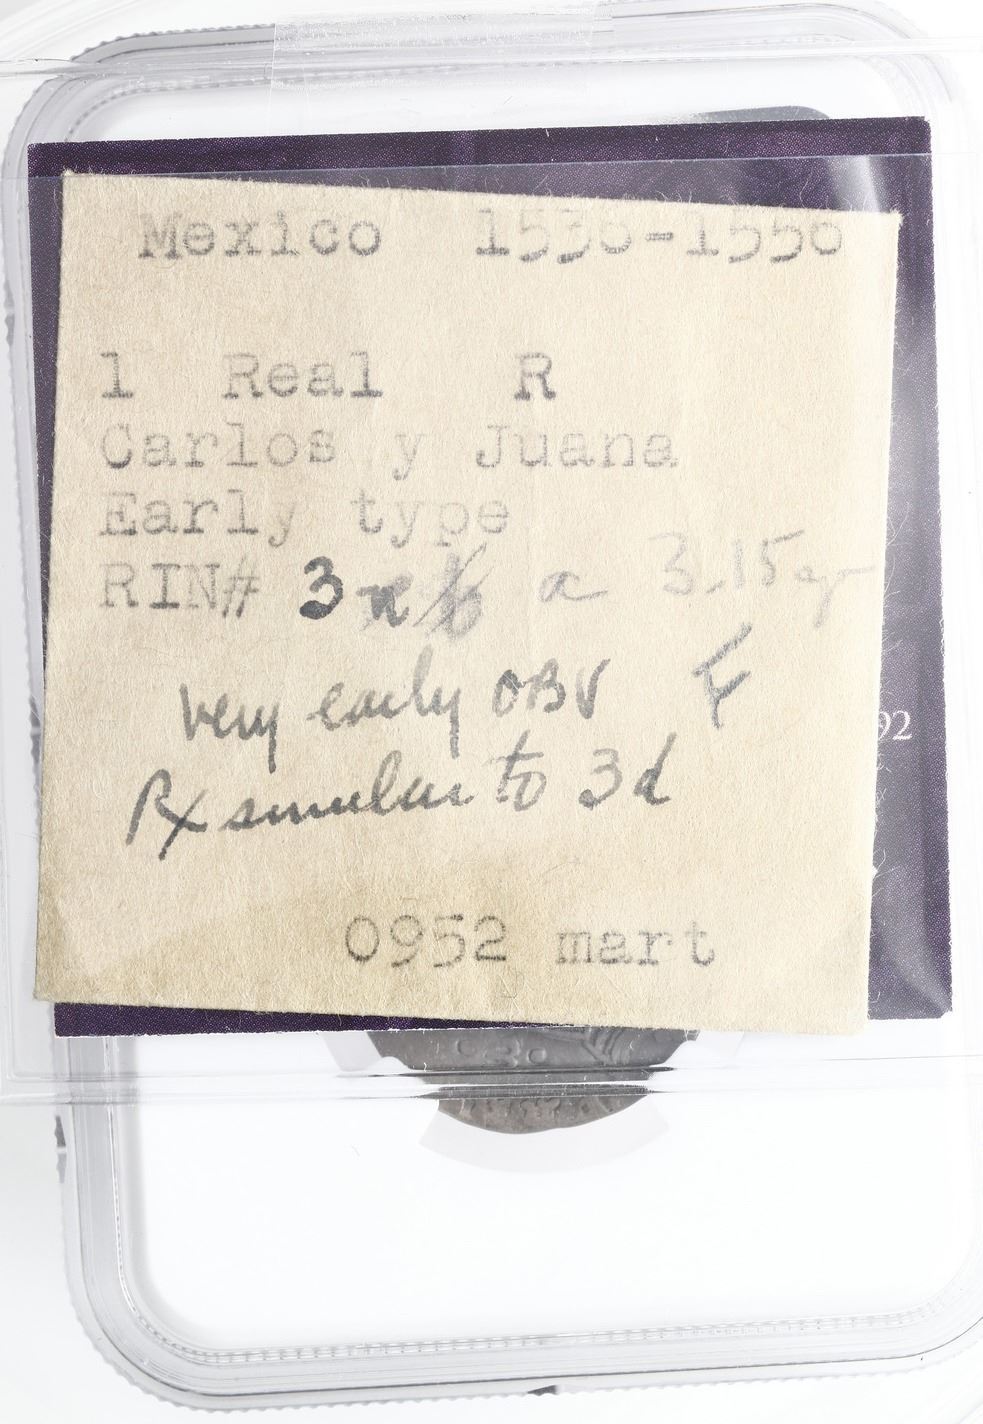 Mexico 1536-1556
1 Real R
Carlos y Juana
Early type
RIN# 3 a 3.15 gr
very early OBV F
Rx similar to 3d
92
0952 mart